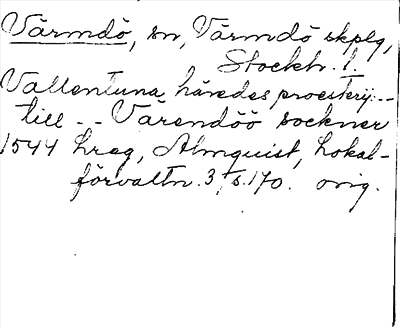 Värmdö, sn, Värmdö skplg,
Stockh. l.
Vallentuna häredes procsterij--
till -- Värendöö sockner
1544 hreg, Almquist, Lokal-
förvaltn. 3, s. 170. orig.